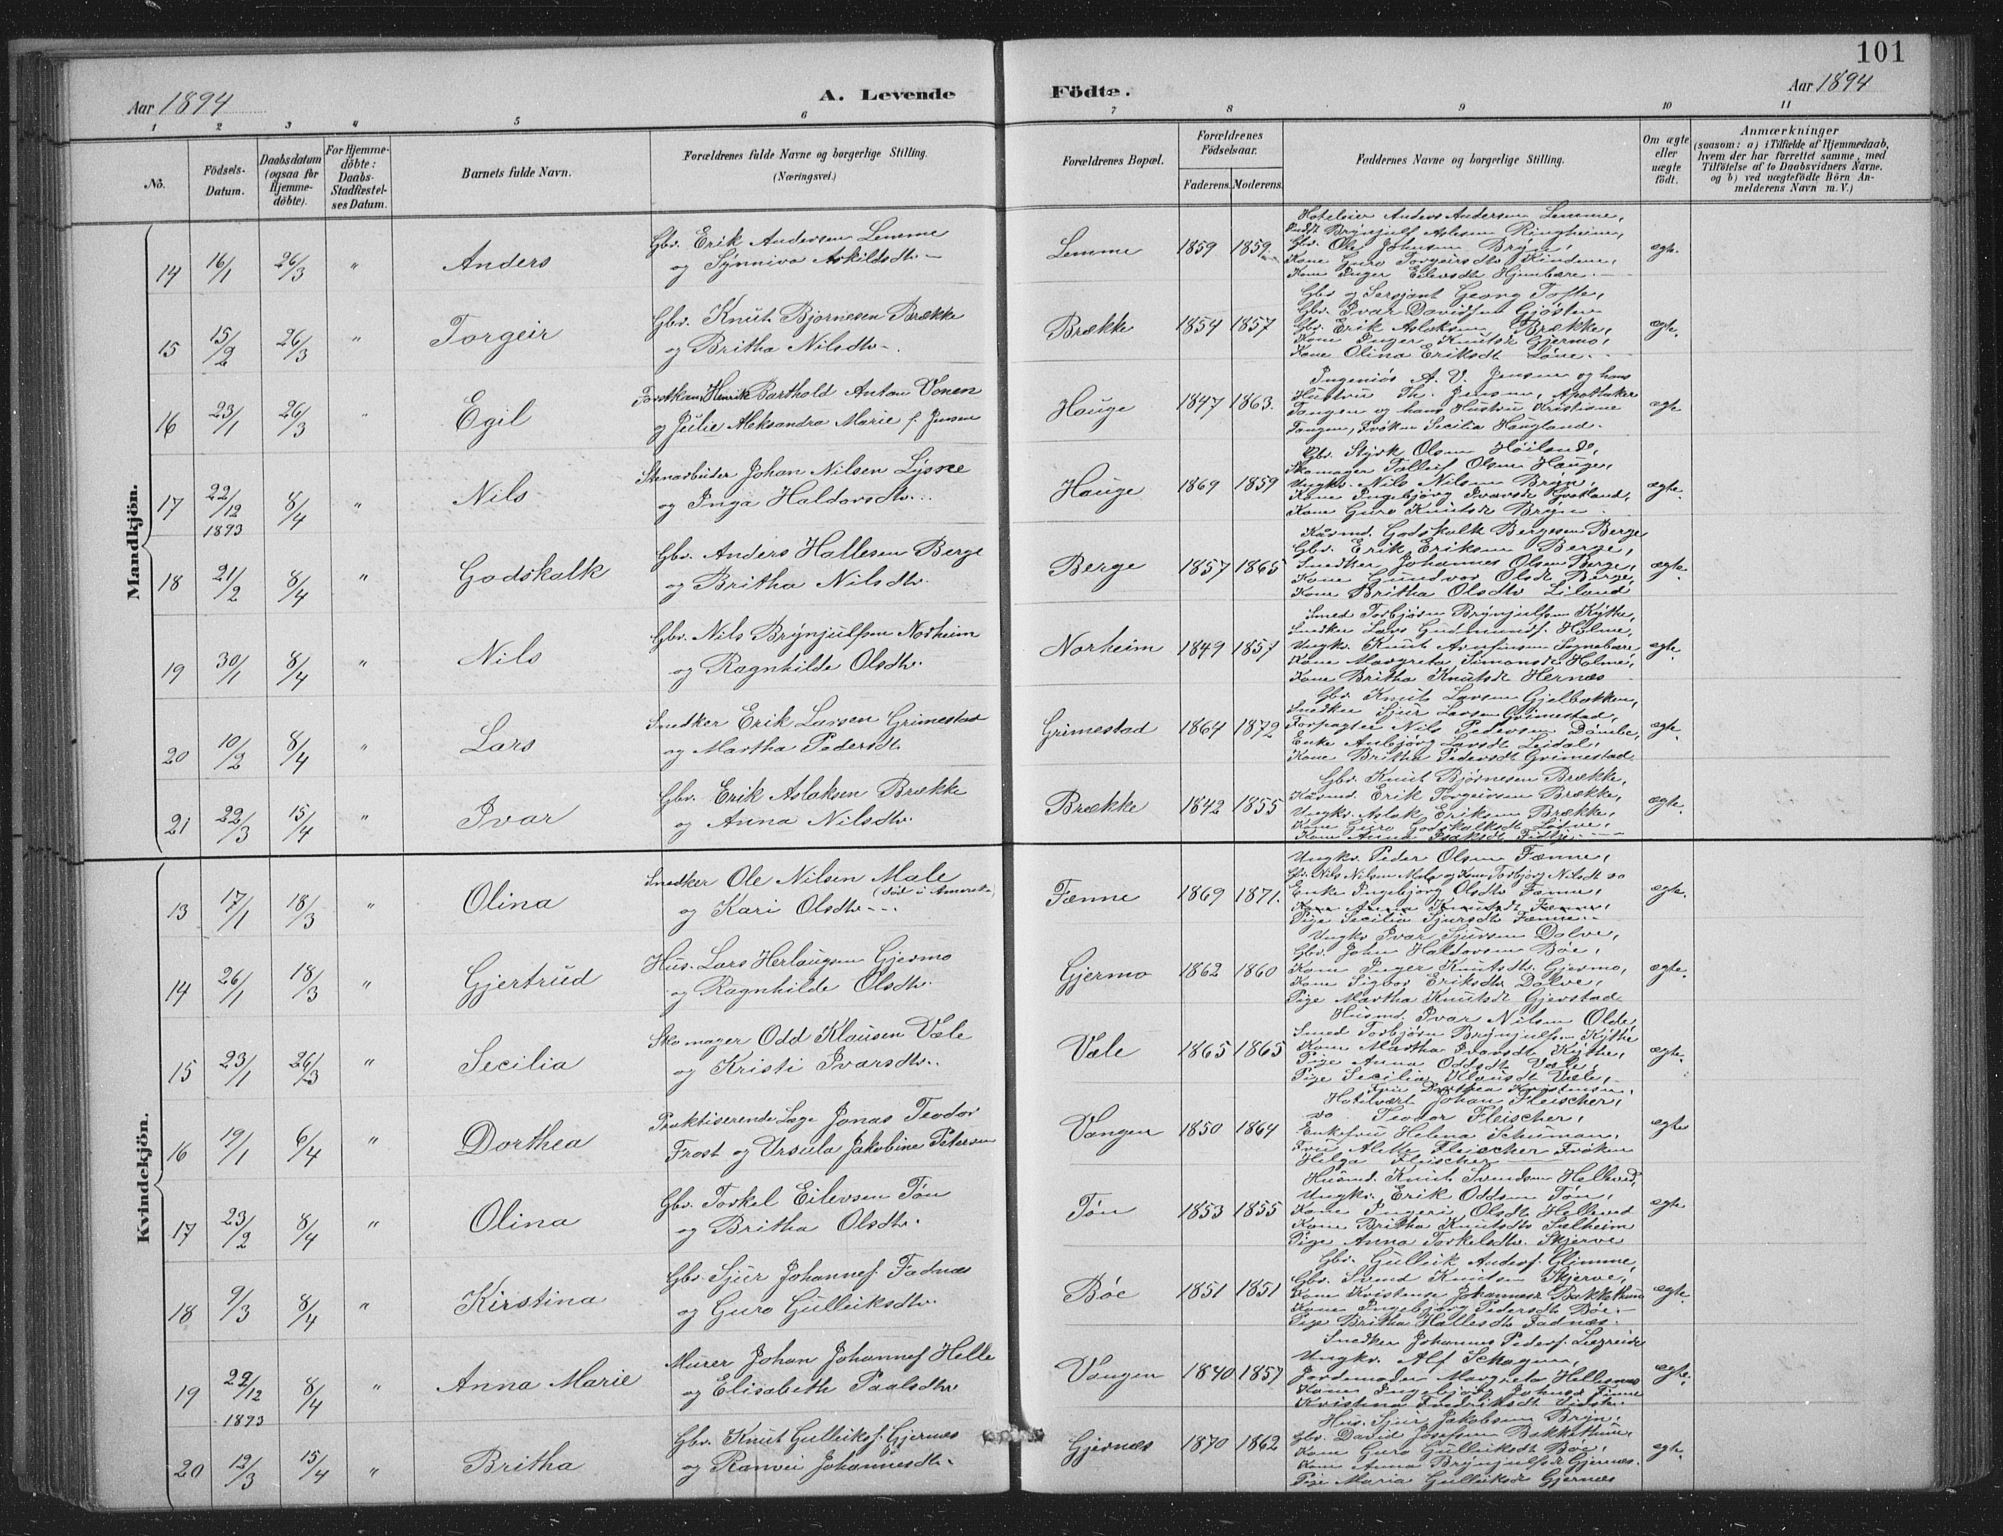 101
Aar 1894
A. Levende
Födte.
Aar 1894
1 2 3 4 5 6 7 8 9 10 11
No.
Födsels-Datum.
Daabsdatum (ogsaa for Hjemme-döbte).
For Hjemme-döbte: Daabs-Stadfæstel-ses Datum.
Barnets fulde Navn.
Forældrenes fulde Navne og borgerlige Stilling. (Næringsvei.)
Forældrenes Bopæl.
Forældrenes Födselsaar.
Faderens. Moderens.
Faddernes Navne og borgerlige Stilling.
Om ægte eller uægte födt.
Anmærkninger
(saasom: a) i Tilfælde af Hjemmedaab, hvem der har forrettet samme, med Tilföielse af to Daabsvidners Navne. og b) ved uægtefödte Börn Anmelderens Navn m. V.)
Mandkjön.
14 16/1 26/3 " Anders Gbr. Erik Andersen Lemme
og Synniva Askildsdtr. Lemme 1859 1859 ægte.
Hoteleier Anders Andersen Lemme,
Brynjulf Aslesen Ringheim,
Gbr. Ole Johnsen Bryn,
Kone Guro Torgeirsdtr Kinden,
Kone Inger Eilevsdt
15 15/2 26/3 " Torgeir Gbr. Knut Bjornesen Brække
og Britha Nilsdtr. Brække 1854 1857 ægte.
Gbr og Sersjant Georg Tofte,
Gbr. Ivar Davidsen Gjøsten
Gbr. Erik Aslaksen Brække,
Kone Inger Knutsdt Gjermo,
Kone Olina Eriksdt Løne.
16 23/1 26/3 " Egil Henrik Barthold Anton Vonen
og Julie Aleksandra Marie f. Jensen Hauge 1847 1863. ægte
Ingeniør A. V. Jensen og hans
Hustru Th. Jensen, Apotheker
Tangen og hans Hustru Kristiane
Tangen, Frøken Secilia Haugland.
17 22/12 1893 8/4 " Nils Stenarbeider Johan Nilsen Lysne
og Inga Haldorsdtr. Hauge 1869 1859 ægte.
Gbr. Styrk Olsen Høiland,
Skomager Tolleif Olsen Hauge,
Ungkr. Nils Nilsen Bryn,
Kone Ingebjørg Ivarsdt
Kone Guro Knutsdt Bryn
18 21/2 8/4 " Godskalk Gbr. Anders Hallesen Berge
og Britha Nilsdtr. Berge 1857 1865 ægte.
Kårmd. Godskalk Bergesen Berge
Gbr. Erik Eriksen Berge,
Snedker Johannes Olsen Berge,
Kone Gundvor Olsdt Berge,
Kone Britha Olsdtr Liland
19 30/1 8/4 " Nils Gbr. Nils Brynjulfsen Norheim
og Ragnhilde Olsdtr. Norheim 1849 1857 ægte.
Smed Torbjørn Brynjulfsen Kythe,
Snedker Lars Gudmundsf. Holme,
Ungkr. Knut Arnfinsen
Kone Margreta Simonsdt Holme,
Kone Britha Knutsdt Hernæs
20 10/2 8/4 " Lars Snedker Erik Larsen Grimestad
og Martha Pedersdt Grimestad 1864 1872 ægte.
Gbr. Knut Larsen Gjelbakken,
Snedker Sjur Larsen Grimestad,
Forpagter Nils Pedersen
Enke Anbjørg Larsdt
Kone Britha Pedersdt Grimestad
21 22/3 15/4 " Ivar Gbr. Erik Aslaksen Brække
og Anna Nilsdtr. Brække 1842 1855 ægte.
Gbr. Knut Bjørnesen Brække,
Kårmd. Erik Torgeirsen Brække,
Ungkr. Aslak Eriksen Brække,
Kone Guro Godskalksdt
Kone Anna
Kvindekjön.
13 17/1 18/3 " Olina Snedker Ole Nilsen Male
(død i Amerika)
og Kari Olsdtr. Fænne 1869 1871. ægte.
Ungkr. Peder Olsen Fænne,
Gbr. Nils Nilsen Male og Kone Torbjørg Nilsdt do
Enke Ingebjørg Olsdtr Fænne,
Kone Anna Knutsdt Fænne,
Pige Secilia Sjursdt Fænne.
14 26/1 18/3 " Gjertrud Hus. Lars Herlaugsen Gjermo
og Ragnhilde Olsdtr. Gjermo 1862 1860 ægte.
Ungkr Ivar Sjursen Dolve,
Gbr. John Haldorsen Bøe,
Kone Inger Knutsdtr. Gjermo,
Kone Sigbor Eriksdtr Dolve,
Pige Martha Knutsdt Gjerstad
15 23/1 26/3 " Secilia Skomager Odd Klausen Væle
og Kristi Ivarsdtr. Væle 1865 1865 ægte.
Husmd. Ivar Nilsen Olde,
Smed Torbjørn Brynjulfsen Kythe
Kone Martha Ivarsdt Kythe,
Pige Anna Oddsdt Væle,
Pige Secilia Klausdt Væle,
16 19/1 6/4 " Dorthea Praktiserende Læge Jonas Teodor
Frost og Ursula Jakobine Petersen Vangen 1850 1864 ægte
Frøk. Dorthea Kristensen,
Hotelvært Johan Fleischer,
do Teodor Fleischer,
Enkefru Helena Schuman,
Fru Alette Fleischer Frøken
Helga Fleischer
17 23/2 8/4 " Olina Gbr. Torkel Eilevsen Tøn
og Britha Olsdtr. Tøn 1853 1855 ægte
Husmd. Knut Svendsen Helleved,
Ungkr. Erik Oddsen Tøn,
Kone Ingeri Olsdt Helleved
Kone Britha Knutsdtr Sælheim
Pige Anna Torkelsdtr. Skjerve
18 9/3 8/4 " Kirstina Gbr. Sjur Johannesf. Fadnæs
og Guro Gulleiksdtr. Bøe 1851 1851 ægte.
Gbr. Gulleik Andersf. Glimme,
Gbr. Svend Knutsen Skjerve,
Kone Kristense Johannesdt Bakkethun
Kone Ingebjørg Pedersdt Bøe.
Pige Britha Hallesdt Fadnæs.
19 22/12 1893 8/4 " Anna Marie Murer Johan Johannesf Helle
og Elisabeth Paalsdtr Vangen 1840 1857 ægte.
Snedker Johannes Pedersf. Liereide
Ungkr. Alf Schagen,
Jordemoder Margreta Hellesnæs
Kone Ingebjørg Johnsd Finne
Kristina Fredriksdt
20 12/3 15/4 " Britha Gbr. Knut Gulleiksf. Gjernæs
og Ranvei Johannesdtr. Gjernæs 1870 1862 ægte.
Hus. Sjur Jakobsen Bryn,
Gbr. David Josefsen Bakkethun,
Kone Guro Gulleiksdt Bøe,
Kone Anna Brynjulfsdt Gjernæs.
Pige Maria Gulleiksdt Gjernæs